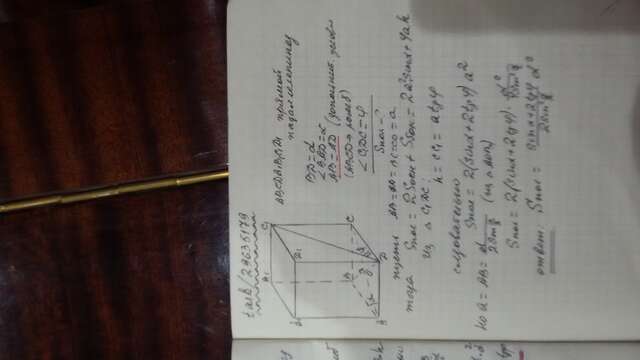 task/29635179
B₁ C₁
A₁ D₁
B C
A D
ABCDA₁B₁C₁D₁ прямой
параллелепипед
BD = d
∠BAD = α
AB = AD (дополнит. услов.
(ABCD → ромб)
∠C₁DC = φ
Sпол - ?
пусть AB = AD = BC = CD = a
тогда Sпол = 2Sосн + Sбок = 2a²sinα + 4ah
Из △ C₁DC:
h = CC₁ = a tgφ
следовательно
Sпол = 2(sinα + 2tgφ) a²
Но a = AB = d / 2sin α/2 (из △AOB)
Sпол = 2(sinα + 2tgφ) · d² / 4sin² α/2
ответ: Sпол = (sinα + 2tgφ) / 2sin² α/2 d²